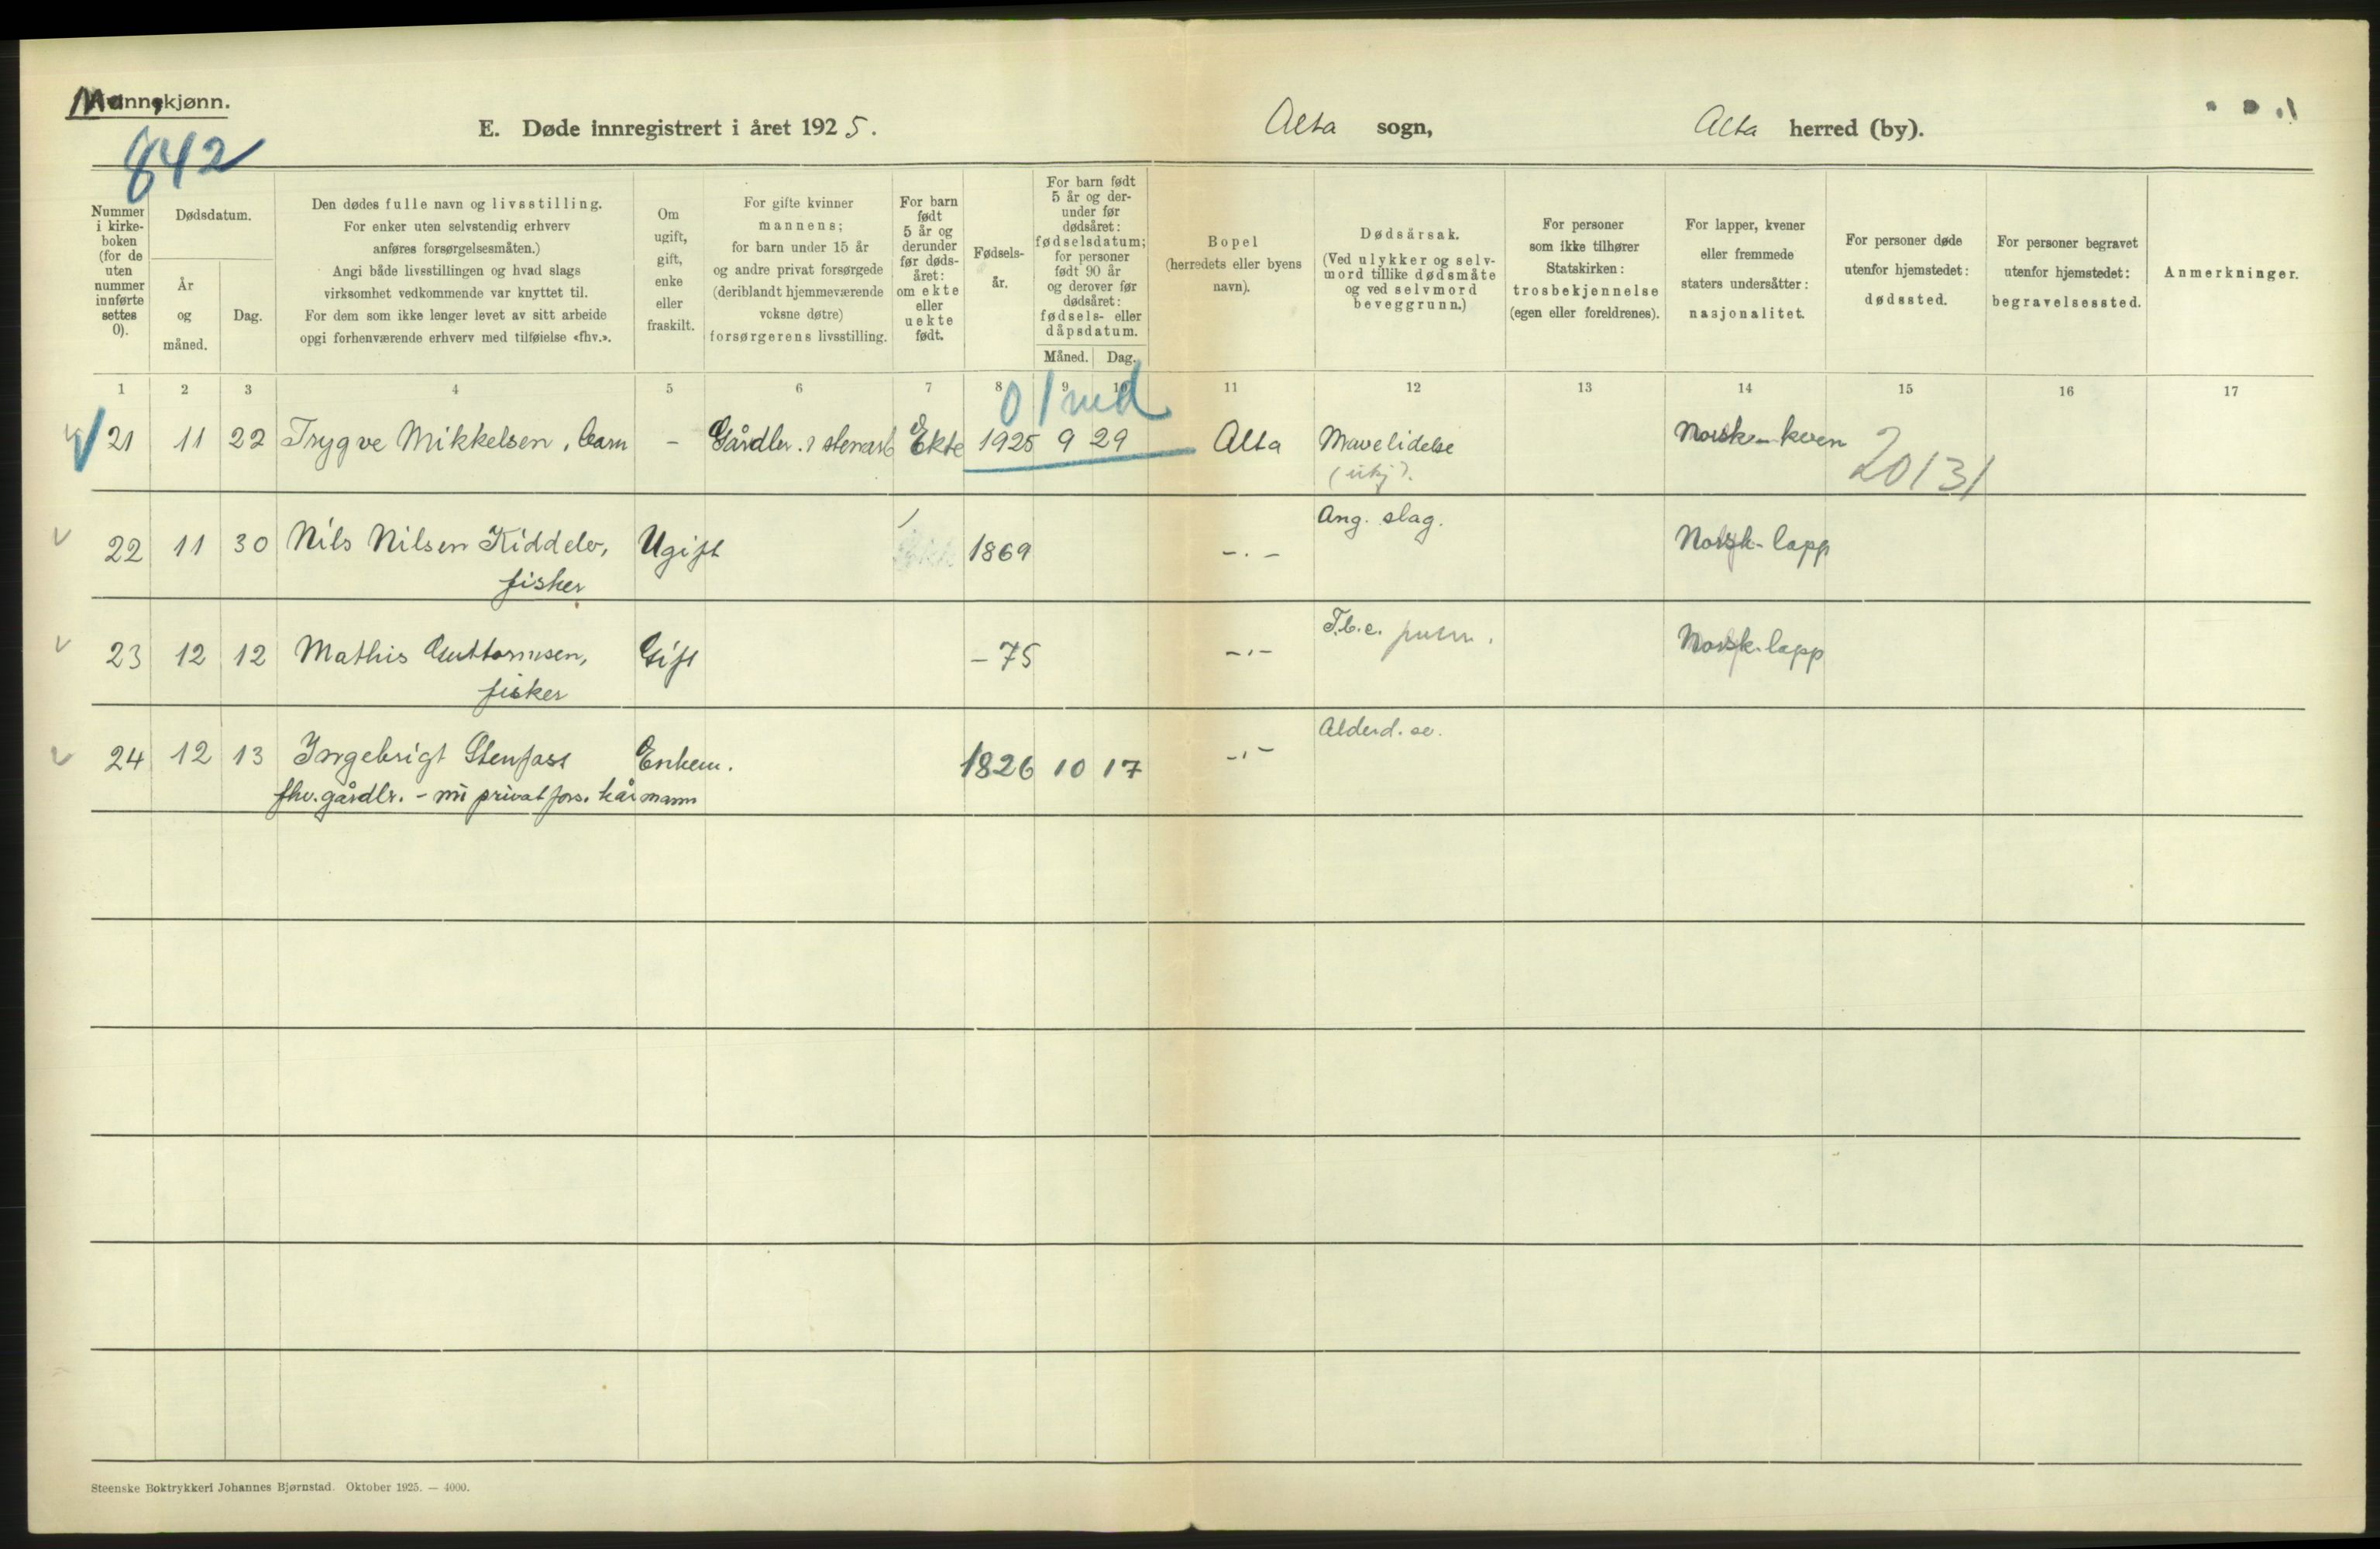 Mannkjønn.
842
E. Døde innregistrert i året 1925.
Alta sogn,
Alta herred (by).
Nummer i kirke-boken (for de uten nummer innførte settes 0).
Dødsdatum.
År og måned.
Dag.
Den dødes fulle navn og livsstilling.
For enker uten selvstendig erhverv
anføres forsørgelsesmåten.)
Angi både livsstillingen og hvad slags
virksomhet vedkommende var knyttet til.
For dem som ikke lenger levet av sitt arbeide
opgi forhenværende erhverv med tilføielse «fhv.».
Om
ugift,
gift,
enke
eller
fraskilt.
For gifte kvinner
mannens;
for barn under 15 år
og andre privat forsørgede
(deriblandt hjemmeværende
voksne døtre)
forsørgerens livsstilling.
For barn
født
5 år og
derunder
før døds-
året:
om ekte
eller
uekte
født.
Fødsels-
år.
For barn født
5 år og der-
under før
dødsåret:
fødselsdatum;
for personer
født 90 år
og derover før
dødsåret:
fødsels- eller
dåpsdatum.
Måned.
Dag.
Bopel
(herredets eller byens
navn).
Dødsårsak.
(Ved ulykker og selv-
mord tillike dødsmåte
og ved selvmord
beveggrunn.)
For personer
som ikke tilhører
Statskirken:
trosbekjennelse
(egen eller foreldrenes).
For lapper, kvener
eller fremmede
staters undersåtter:
nasjonalitet.
For personer døde
utenfor hjemstedet:
dødssted.
For personer begravet
utenfor hjemstedet:
begravelsessted.
Anmerkninger.
1 2 3 4 5 6 7 8 9 10 11 12 13 14 15 16 17
0 1 md
21 11 22 Trygve Mikkelsen, barn - Gårdbr. & stenarb Ekte 1925 9 29 Alta Mavelidelse Norsk-kven
(ukj). 20131
22 11 30 Nils Nilsen Kiddelv, Ugift 1869 -.- Ang. slag. Norsk-lapp
fisker
23 12 12 Mathis Guttormsen, Gift -75 -.- T.b.c. pulm. Norsk-lapp
fisker
24 12 13 Ingebrigt Stenfass Enkem. 1826 10 17 -.- Alderd. se.
fhv. gårdbr. - nu privat fors. kårmann
Steenske Boktrykkeri Johannes Bjørnstad. Oktober 1925. — 4000.